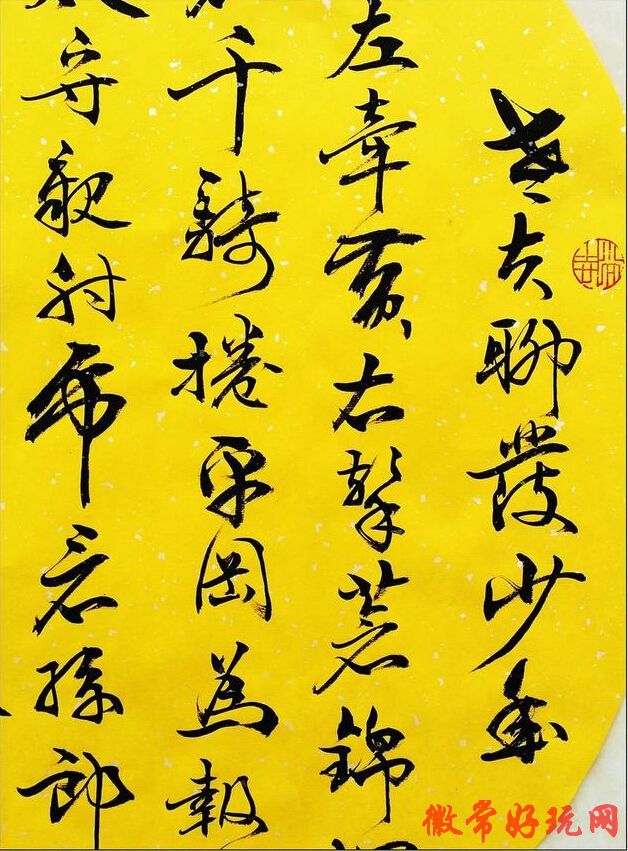 老夫聊發少年
左牽黃右擎蒼錦
千騎捲平岡為報
守親射虎看孫郎
徽常好玩网